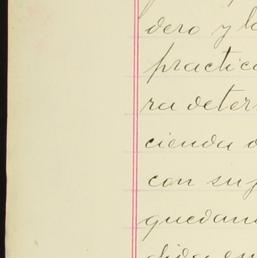 dero y la
practica
ra deter
cienda
con suj
quedan